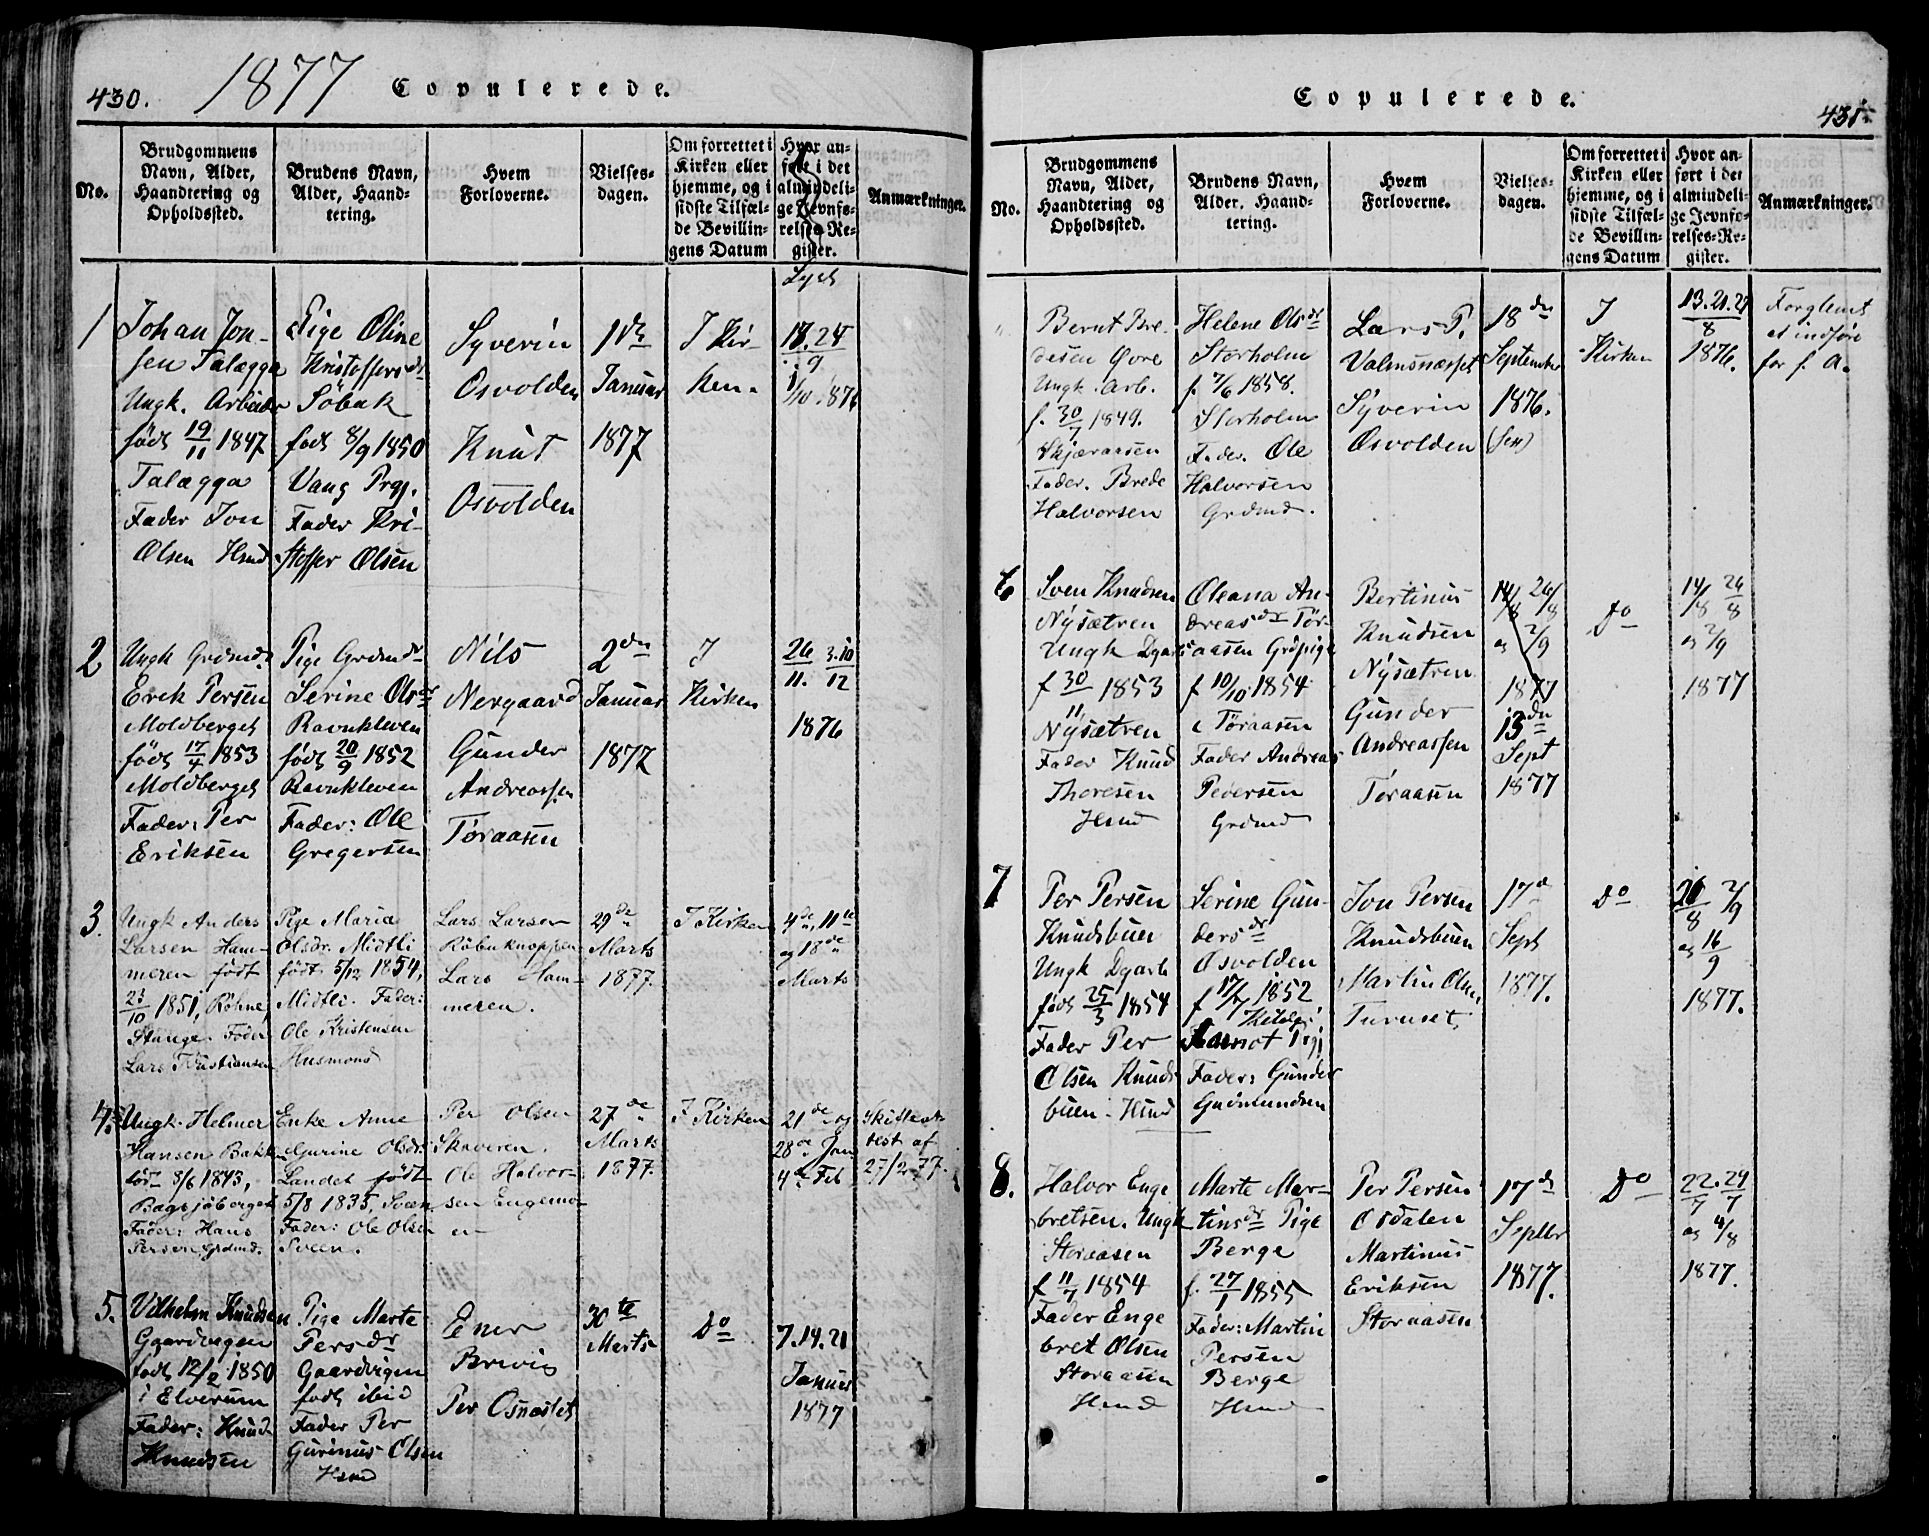 430.
1877
Copulerede.
No.
Brudgommens
Navn, Alder,
Haandtering og
Opholdssted.
Brudens Navn,
Alder, Haand-
tering.
Hvem
Forloverne.
Vielses-
dagen.
Om forrettet i
Kirken eller
hjemme, og i
sidste Tilfæl-
de Bevillin-
gens Datum
Hvor an-
ført i det
almindeli-
ge Jevnfø-
relses-Re-
gister.
Anmærkninger.
Lyst
1
Johan Jon-
sen Talægga
Ungk. Arbeider
født 19/11 1847
Talægga
Fader Jon
Olsen Hmd
Pige Oline
Kristoffersdr
Søbak
født 8/9 1850
Vang Prgj.
Fader Kri-
stoffer Olsen
Syverin
Osvolden
Knut
Osvolden
1ste
Januar
1877
I Kir-
ken.
17.24
9
1/10 1876
2
Ungk Grdmd.
Erik Persen
Moldberget
født 17/4 1853
Moldberget
Fader: Per
Eriksen
Pige Grdmdr
Serine Olsdr
Ravnkleven
født 20/9 1852
Ravnkleven
Fader: Ole
Gregersen
Nils
Nergaard
Gunder
Andreassen
Tøraasen
2den
Januar
1877
I
Kirken
26 3.10
11. 12
1876
3.
Ungk Anders
Larsen Ham-
meren født
23/10 1851, Røhne,
Stange. Fader
Lars Kristiansen
Pige Maria
Olsdr. Midtli
født 5/12 1854,
Midtli. Fader:
Ole Kristensen
Husmand
Lars Larsen
Røbuknoppen
Lars Ham-
meren.
29de
Marts
1877.
I Kirken
4de, 11te
og 18de
Marts
4.
Ungk. Helmer
Hansen Bakken
født 8/6 1843,
Bagsjøberget
Fader: Hans
Persen Grdmd.
Enke Anne
Gurine Olsdr.
Landet født
5/8 1835, Sveen
Fader: Ole Olsen
Sveen.
Per Olsen
Skaveren.
Ole Halvor-
sen Engemo-
en
27de
Marts
1877.
I Kirken
21de og
28de Jan
4de Feb
Skifteat-
test af
27/2 77.
5.
Vilhelm Knudsen
Gaardvigen
født 12/2 1850
i Elverum
Fader: Knud
Knudsen
Pige Marte
Persdr
Gaardvigen
født ibid
Fader Per
Gurinus Olsen
Hmd
Ener
Brevig
Per Osnæstet
30te
Marts
Do
7.14.21
Januar
1877
Copulerede.
431.
No.
Brudgommens
Navn, Alder,
Haandtering og
Opholdssted.
Brudens Navn,
Alder, Haand-
tering.
Hvem
Forloverne.
Vielses-
dagen.
Om forrettet i
Kirken eller
hjemme, og i
sidste Tilfæl-
de Bevillin-
gens Datum
Hvor an-
ført i det
almindeli-
ge Jevnfø-
relses-Re-
gister.
Anmærkninger.
Bernt Bre-
desen Øvre
Ungk. Arb.
f. 30/7 1849.
Skjæraasen
Fader. Brede
Halvorsen
Helene Olsdr
Storholm
f. 7/6 1858.
Storholm
Fader. Ole
Halvorsen
Grdmd.
Lars P.
Valmsnæsset
Syverin
Osvolden
18den
September
1876.
I
Kirken
13.21.27
8
1876.
Forglemt
at indføre
for f. A.
6
Sven Knudsen
Nysætren
Ungk Dgarb
f 30/11 1853
Nysætren
Fader Knud
Thoresen
Hmd
Oleana An-
dreasdr Tør-
aasen Grdpige
f 10/10 1854
Tøraasen
Fader Andreas
Pedersen
Grdmd
Bertinus
Knudsen
Nysætren
Gunder
Andreassen
Tøraasen
14/8 26/8
og 2/9
1877
13de
Sept
1877
Do
14/8 26/8
og 2/9
1877
7
Per Persen
Knudsbuen
Ungk Dgarb
født 25/3 1854
Fader Per
Olsen Knuds-
buen. Hmd
Serine Gun-
dersdr
Osvolden
f 17/7 1852
Fader: Gunder
Gudmundsen
Jon Persen
Knudsbuen
Martin Olsen
Turuset
17de
Sept
1877.
Do
26/8 2/9
og 16/9
1877.
8.
Halvor Enge
bretsen. Ungk
Storaasen
f 11/7 1854
Fader Enge
bret Olsen
Storaasen
Hmd
Marte Mar-
tinsdr Pige
Berge
f. 27/1 1855
Fader: Martin
Persen
Berge
Hmd
Per Persen
Osdalen
Martinus
Eriksen
Storaasen
17de
Septbr
1877.
Do
22.29
7 7
og 4/8
1877.